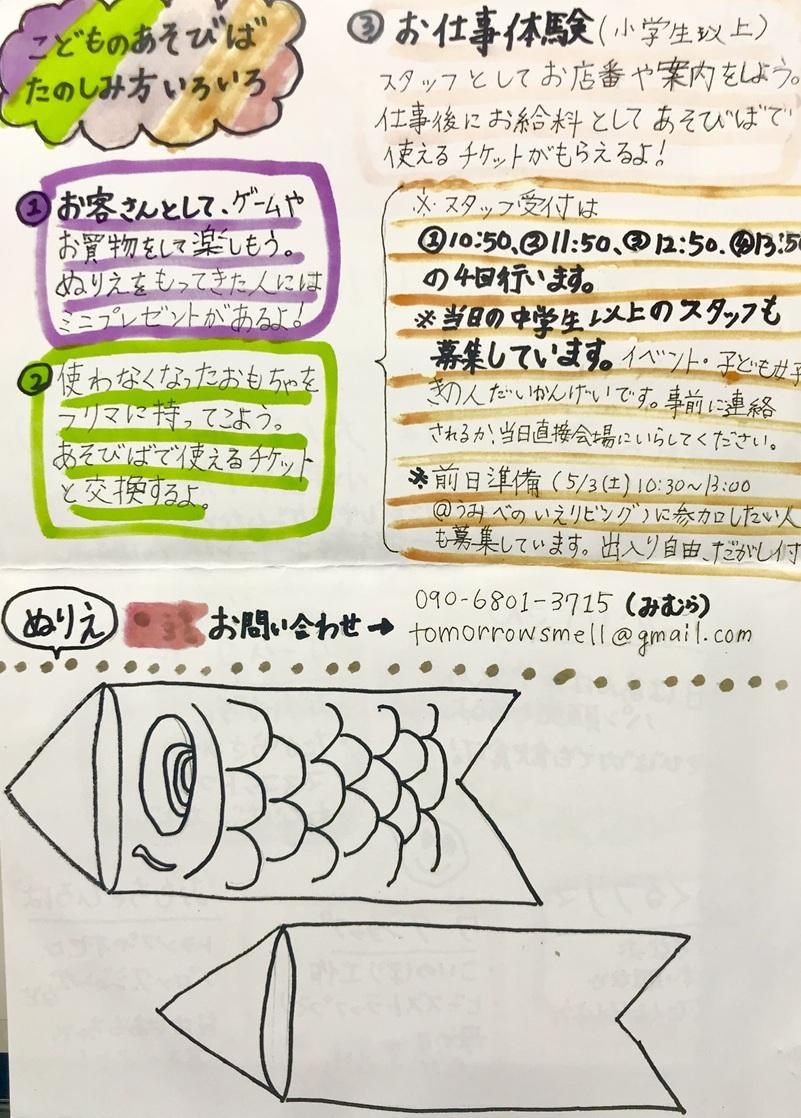 こどものあそびば
たのしみ方いろいろ
① お客さんとして、ゲームや
お買物をして楽しもう。
ぬりえをもってきた人には
ミニプレゼントがあるよ!
② 使わなくなったおもちゃを
フリマに持ってこよう。
あそびばで使えるチケット
と交換するよ。
③ お仕事体験(小学生以上)
スタッフとしてお店番や案内をしよう。
仕事後にお給料としてあそびばで
使えるチケットがもらえるよ!
※スタッフ受付は
①10:50、②11:50、③12:50、④13:50
の4回行います。
※当日の中学生以上のスタッフも
募集しています。イベント・子ども好
きの人だいかんげいです。事前に連絡
されるか、当日直接会場にいらしてください。
※前日準備(5/3(土)10:30~13:00
@うみべのいえリビング)に参加したい人
も募集しています。出入り自由、だがし付
ぬりえ
お問い合わせ→ 090-6801-3715(みむら)
tomorrowsmell@gmail.com